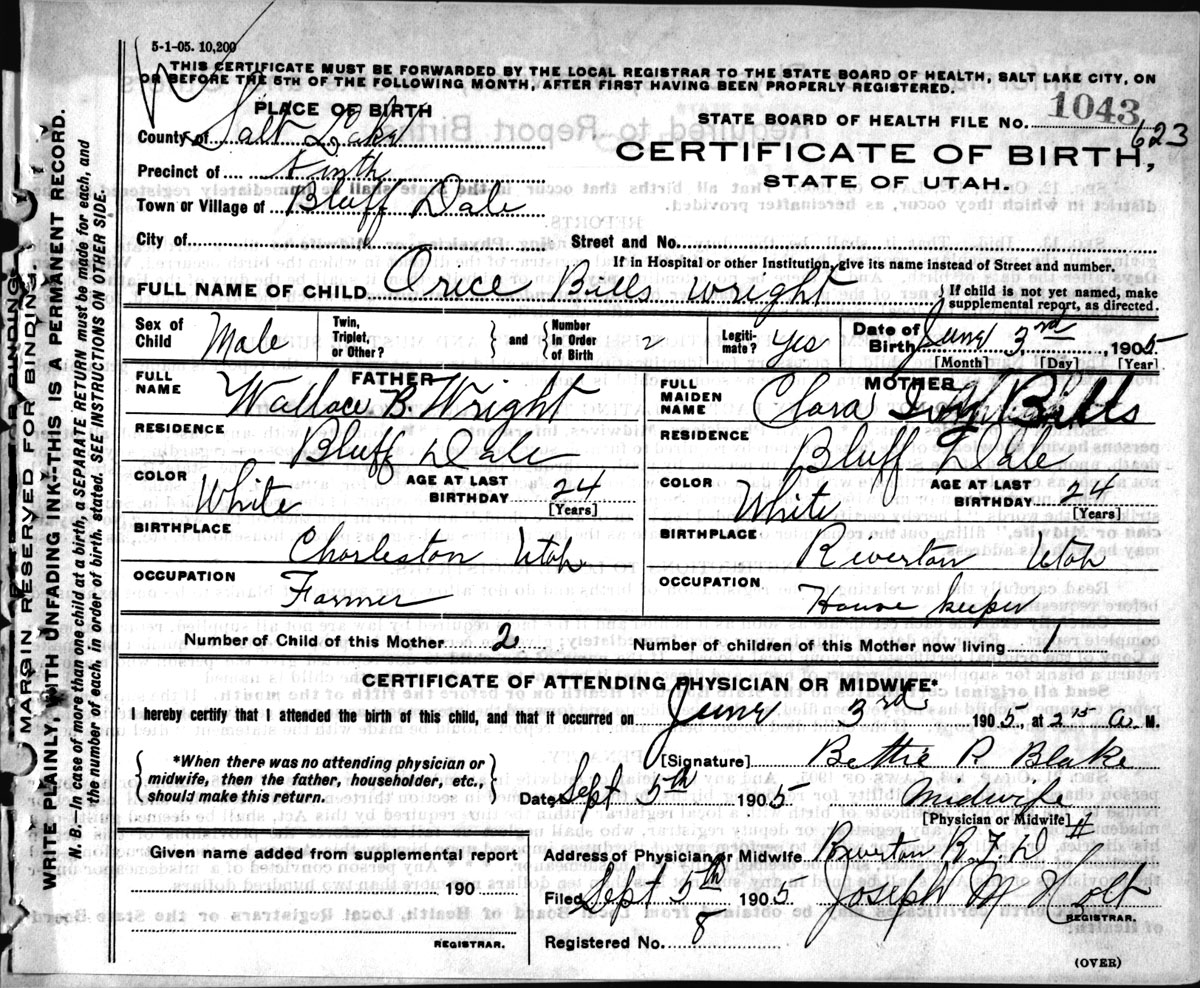 5-1-05. 10,200
THIS CERTIFICATE MUST BE FORWARDED BY THE LOCAL REGISTRAR TO THE STATE BOARD OF HEALTH, SALT LAKE CITY, ON
OR BEFORE THE 5TH OF THE FOLLOWING MONTH, AFTER FIRST HAVING BEEN PROPERLY REGISTERED.
PLACE OF BIRTH
STATE BOARD OF HEALTH FILE NO. 1043
623
County of Salt Lake
CERTIFICATE OF BIRTH,
Precinct of Ninth
STATE OF UTAH.
Town or Village of Bluff Dale
City of Street and No.
If in Hospital or other Institution, give its name instead of Street and number.
FULL NAME OF CHILD Orice Bills Wright { If child is not yet named, make supplemental report, as directed.
Sex of Child Male Twin, Triplet, or Other? } and { Number In Order of Birth 2 Legitimate? yes Date of Birth June 3rd, 1905
[Month] [Day] [Year]
FULL NAME FATHER Wallace B. Wright
FULL MAIDEN NAME MOTHER Clara Bills
RESIDENCE Bluff Dale
RESIDENCE Bluff Dale
COLOR White AGE AT LAST BIRTHDAY 24 [Years]
COLOR White AGE AT LAST BIRTHDAY 24 [Years]
BIRTHPLACE Charleston Utah
BIRTHPLACE Riverton Utah
OCCUPATION Farmer
OCCUPATION House keeper
Number of Child of this Mother 2 Number of children of this Mother now living 1
CERTIFICATE OF ATTENDING PHYSICIAN OR MIDWIFE*
I hereby certify that I attended the birth of this child, and that it occurred on June 3rd, 1905, at 2 15 a M.
{ *When there was no attending physician or midwife, then the father, householder, etc., should make this return. }
[Signature] Bettie P. Blake
Date Sept 5th 1905 Midwife
[Physician or Midwife]
Given name added from supplemental report
190
REGISTRAR.
Address of Physician or Midwife Riverton R.F.D #1
Filed Sept 5th 1905 Joseph M Holt
REGISTRAR.
Registered No. 8
(OVER)
MARGIN RESERVED FOR BINDING
WRITE PLAINLY, WITH UNFADING INK--THIS IS A PERMANENT RECORD.
N. B. In case of more than one child at a birth, a SEPARATE RETURN must be made for each, and
the number of each, in order of birth, stated. SEE INSTRUCTIONS ON OTHER SIDE.